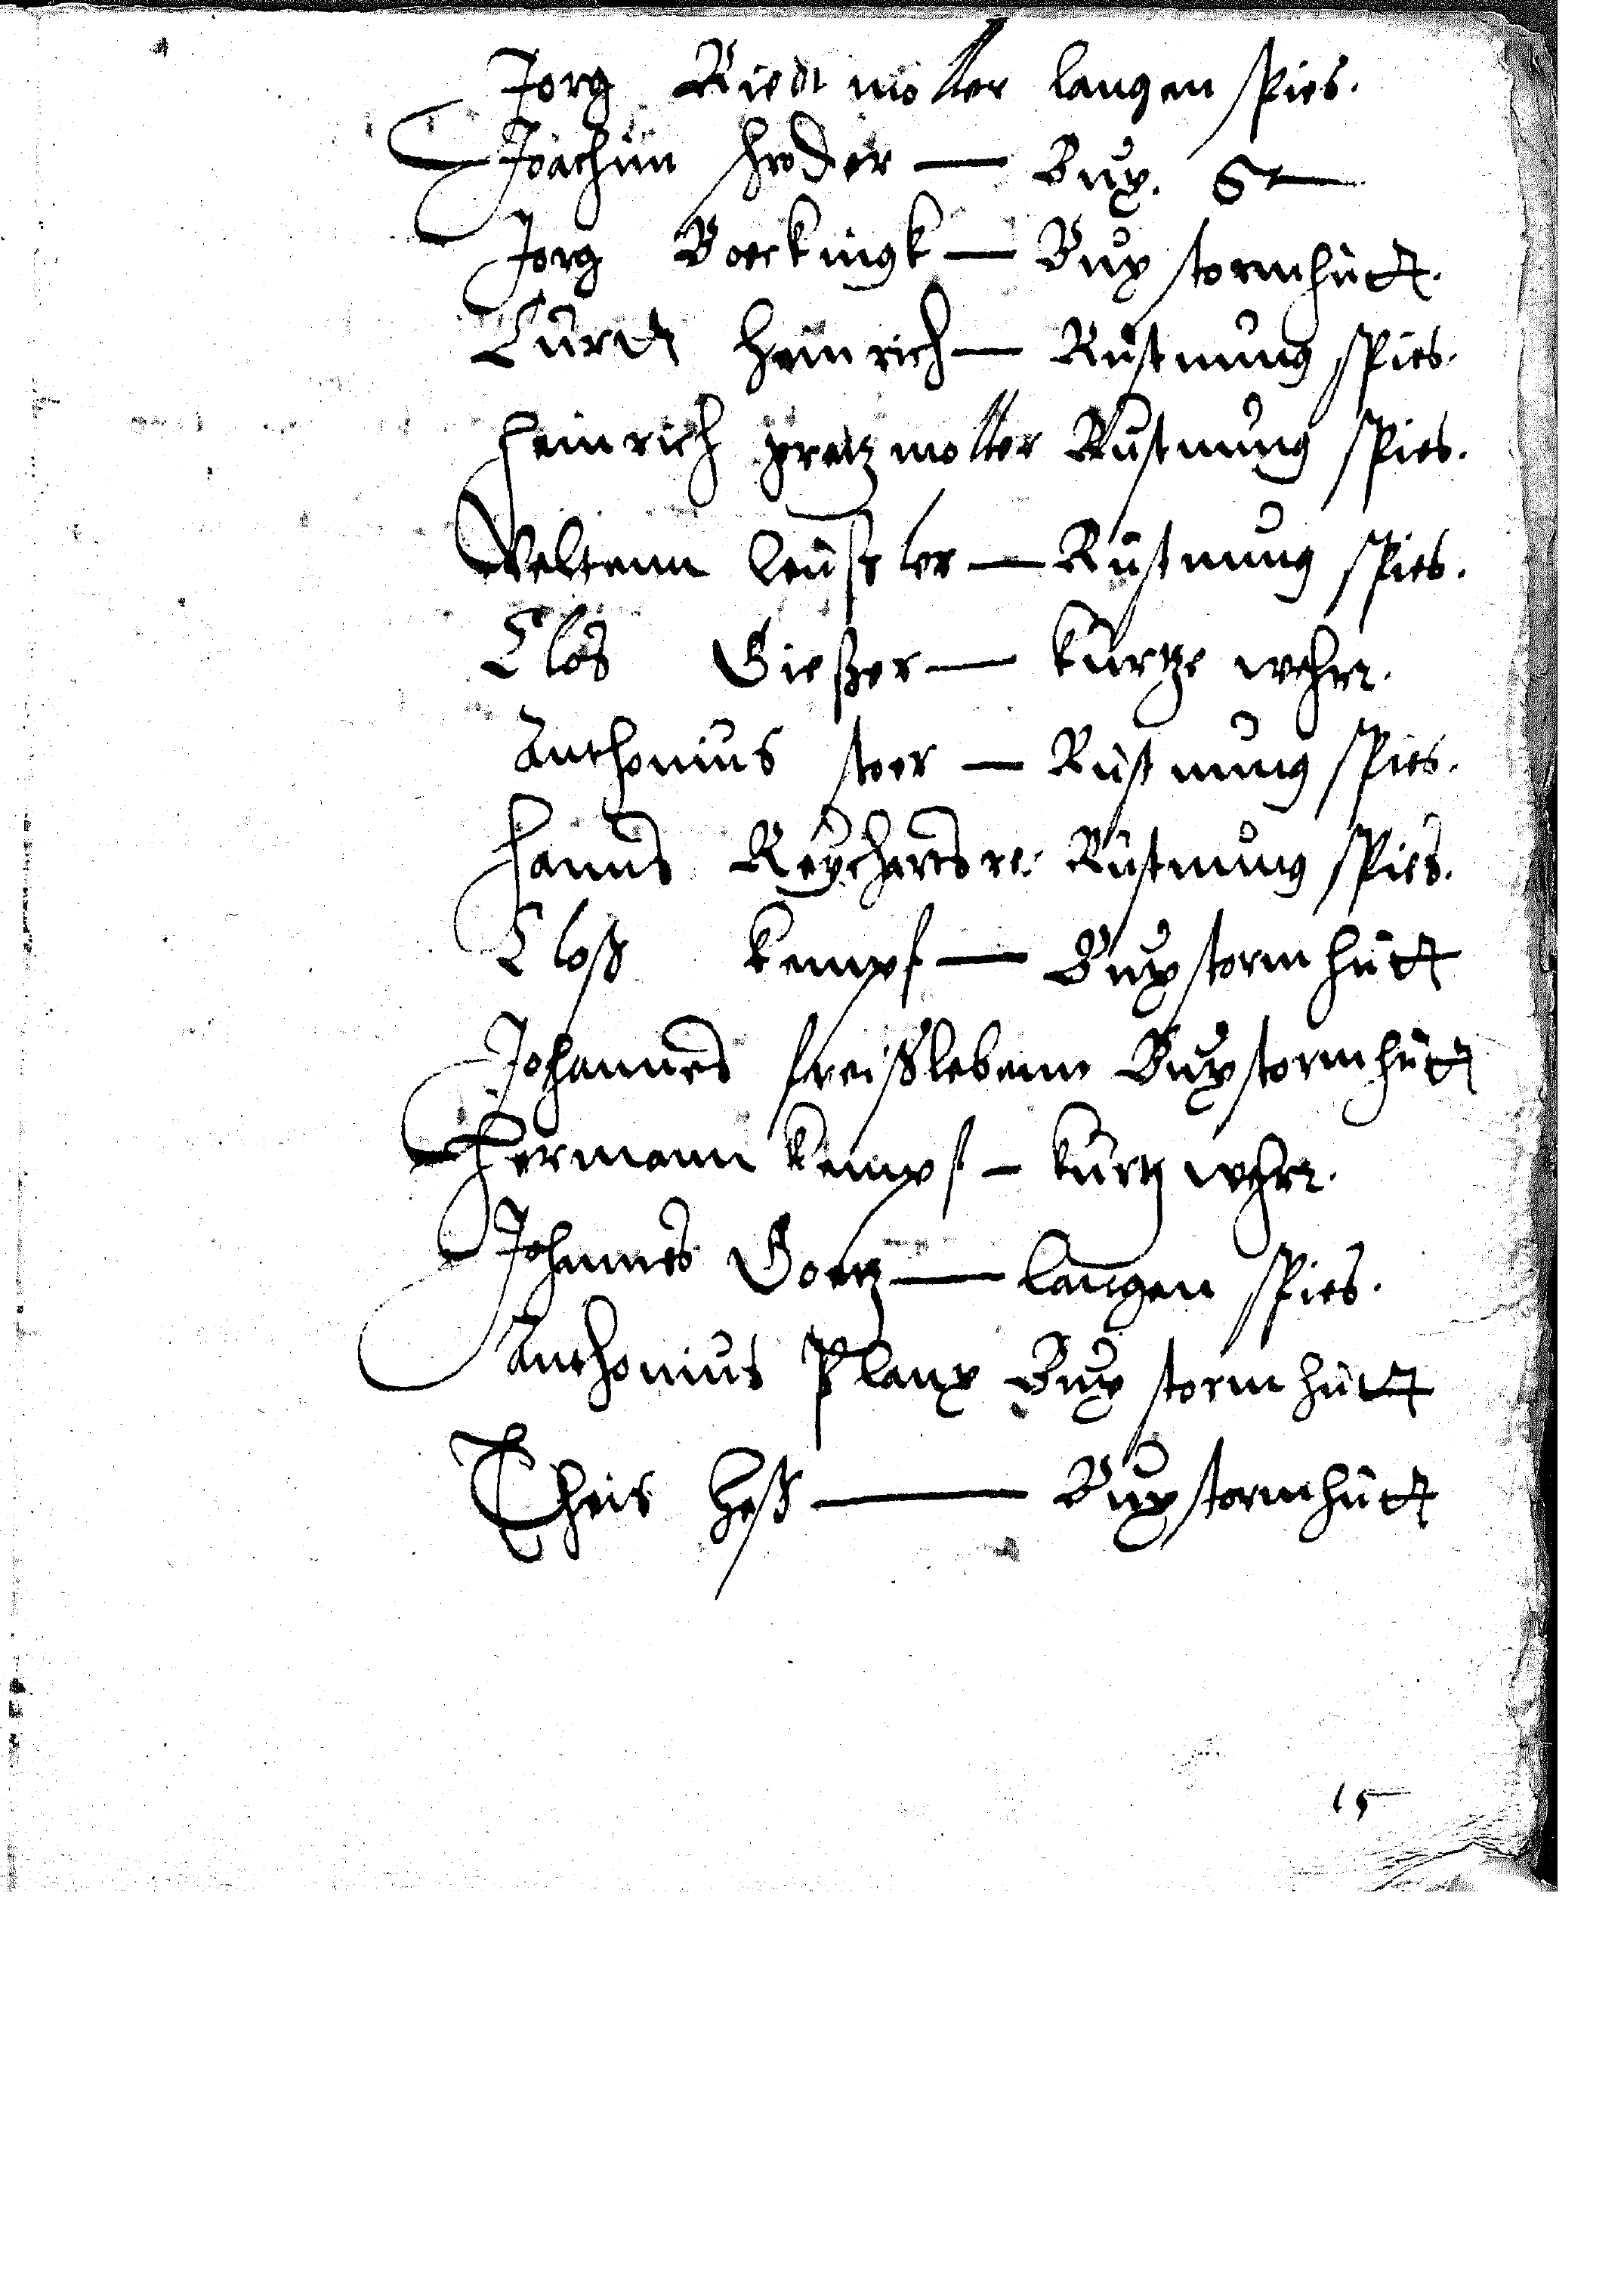 Jorg Riedtmoller langen spies.
Joachim hoder — Bux. St—
Jorg Boerkingk — Bux stormhutt.
Curdt Heinrich — Rustnung spies.
Heinrich pretzmoller Rustnung spies.
Veltenn leußler — Rustnung spies.
Clos Gießer — kurtze wehr.
Anthonius stoer — Rustnung spies.
Hanns Reycharts Rustnung spies.
Cloß kempf — Bux stormhutt
Johannes freißlebenn Bux stormhutt
Hermann kempf — kurtz wehr.
Johannes Goetz — langen spies.
Anthonius Planx Bux stormhutt
Theis heß — Bux stormhutt
15